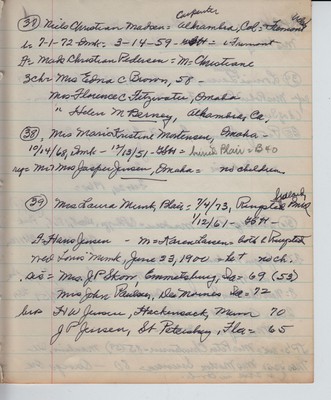 Carpenter
(37) Niels Christian Madsen = Alhambra, Cal = Fremont
b 7-1-72 Dmk = 3-14-59 - Fremont
F = Mads Christian Pedersen = M = Christiane
3 chr Mrs Edna C Brown, 58 -
Mrs Florence C Fitzwater, Omaha
" Helen M Berney, Alhambra Ca
(38) Mrs Maria Kristine Mortensen, Omaha -
10/14/68, Dmk - 12/13/51 - burial Blair = B40
Mr Mrs Jasper Jensen, Omaha = no children
(39) Mrs Laura Munk, Blair = 7/4/73, Ringsted Dmk
1/12/61 -
F = Hans Jensen - M = Karen Larsen = both b Ringsted
wed Louis Munk, June 23, 1900 = no ch.
sis = Mrs J P Skow, Emmetsburg, Ia = 69 (53)
Mrs John Paulsen, Des Moines Ia = 72
bros H W Jensen, Hackensack, Minn 70
J P Jensen, St Petersburg, Fla = 65